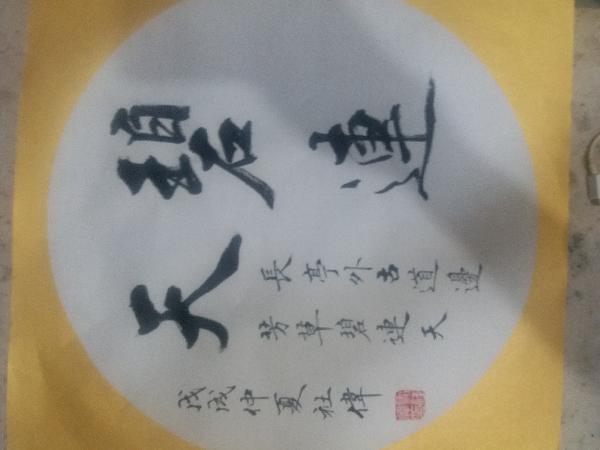 碧連
天
長亭外古道邊
芳草碧連天
戊戌仲夏杜偉